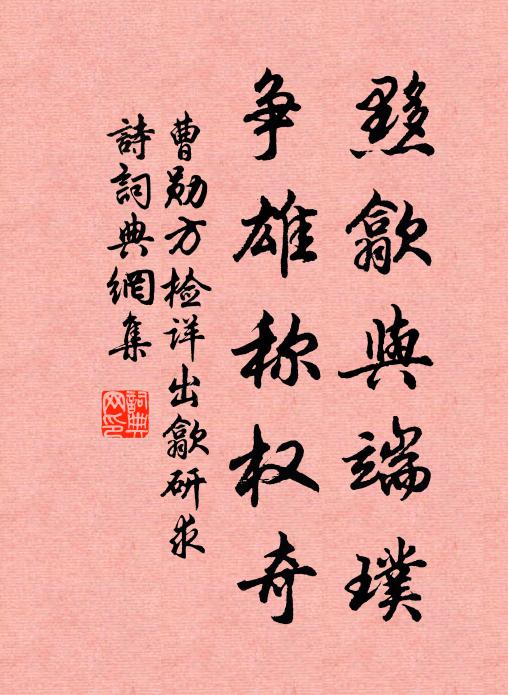 黟歙與端璞
争雄称权奇
曹勋方检详出歙研求
詩詞典網集
詞典
网印